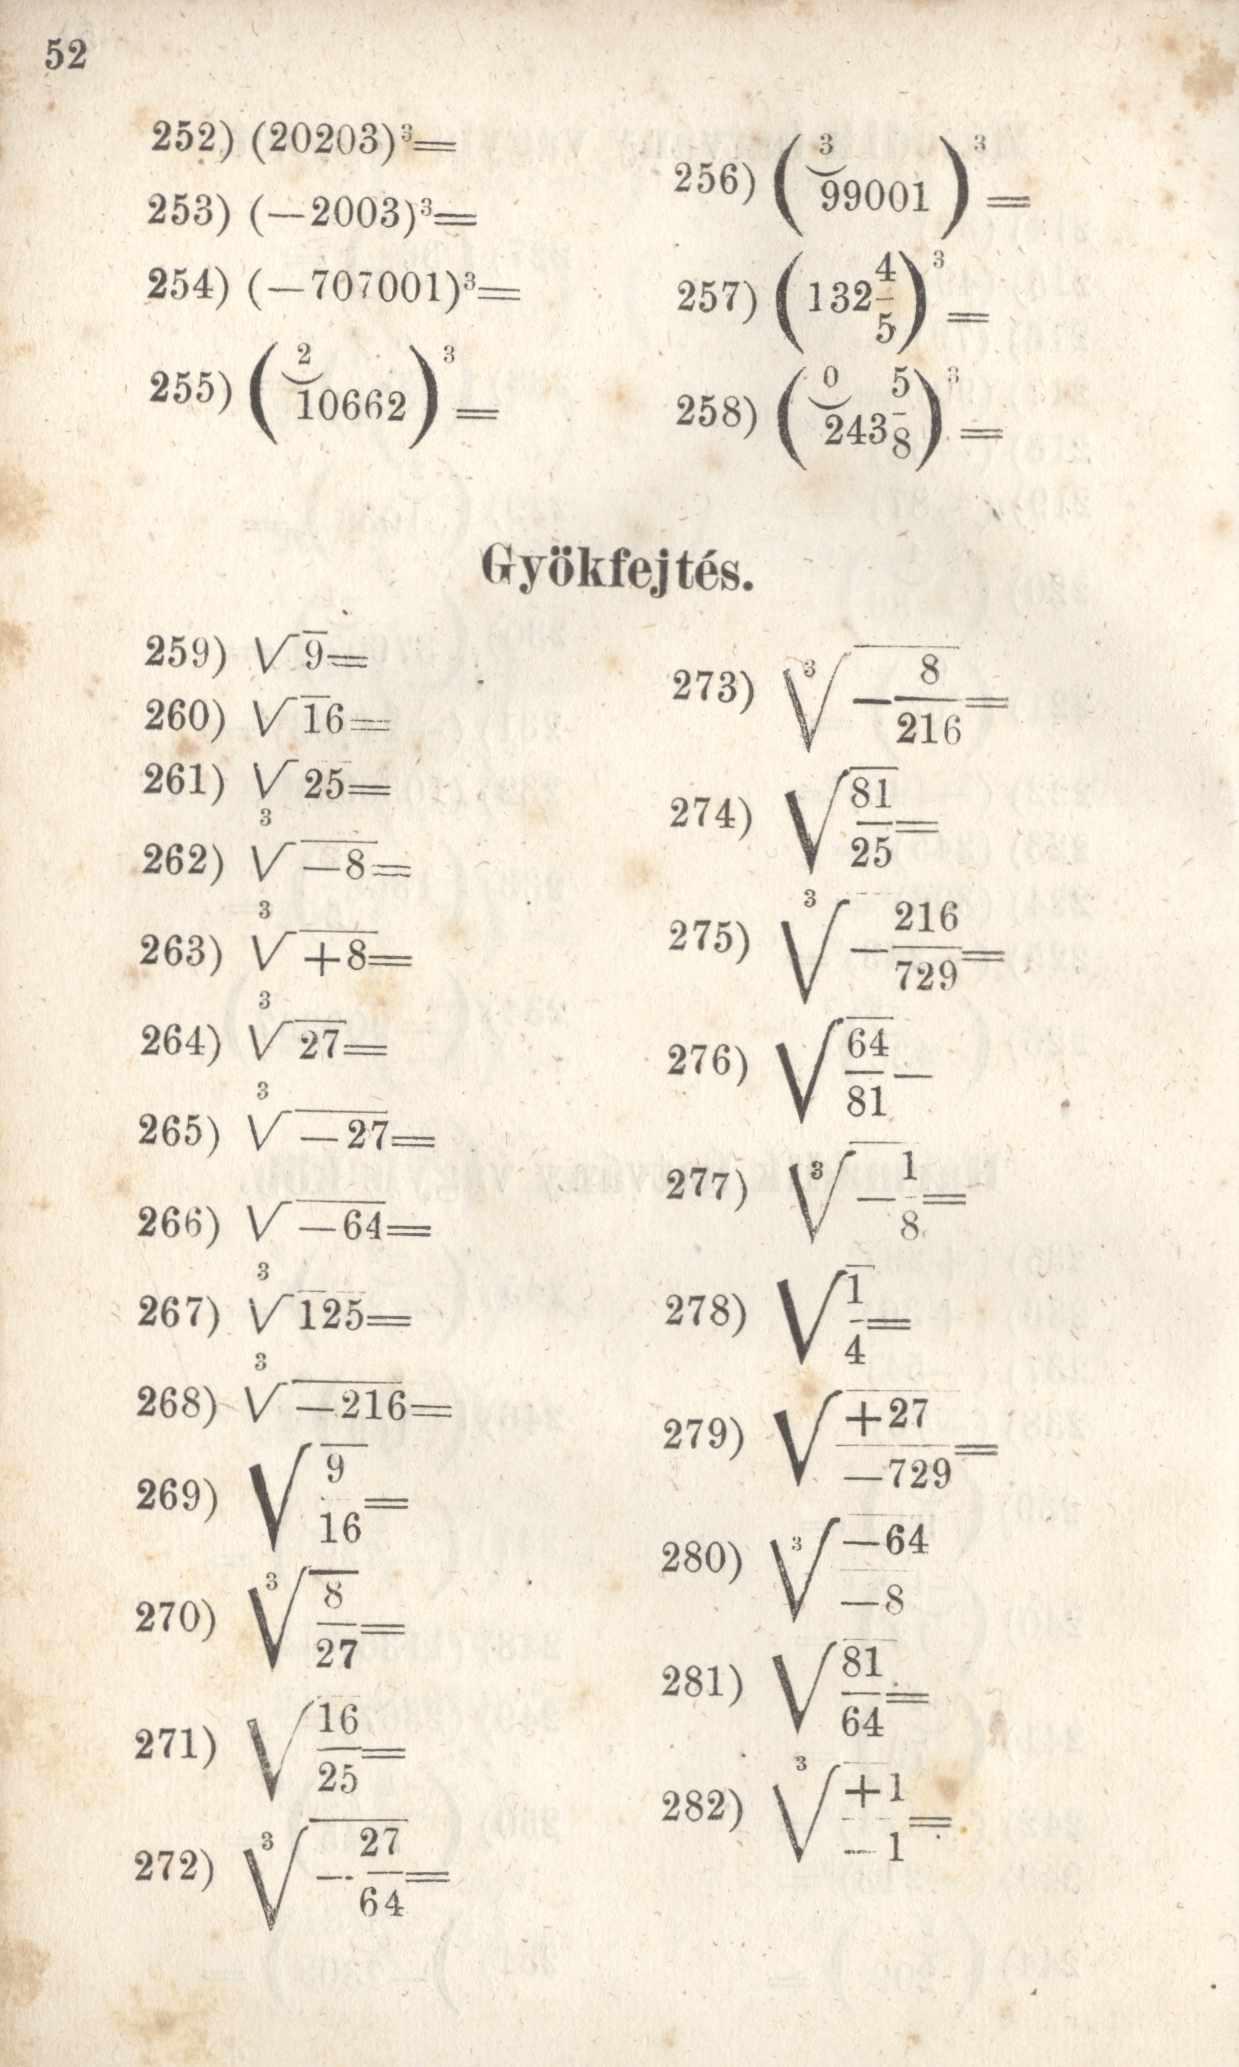 52
252) (20203)³=
253) (—2003)³=
254) (—707001)³=
255) (2⏝10662)³=
256) (3⏝99001)³=
257) (132 4/5)³=
258) (0⏝243 5/8)³=
Gyökfejtés.
259) √9=
260) √16=
261) √25=
262) ∛—8=
263) ∛+8=
264) ∛27=
265) ∛—27=
266) √—64=
267) ∛125=
268) ∛—216=
269) √9/16=
270) ∛8/27=
271) √16/25=
272) ∛—27/64=
273) ∛—8/216=
274) √81/25=
275) ∛—216/729=
276) √64/81—
277) ∛—1/8=
278) √1/4=
279) √+27/—729=
280) ∛—64/—8
281) √81/64=
282) ∛+1/—1=